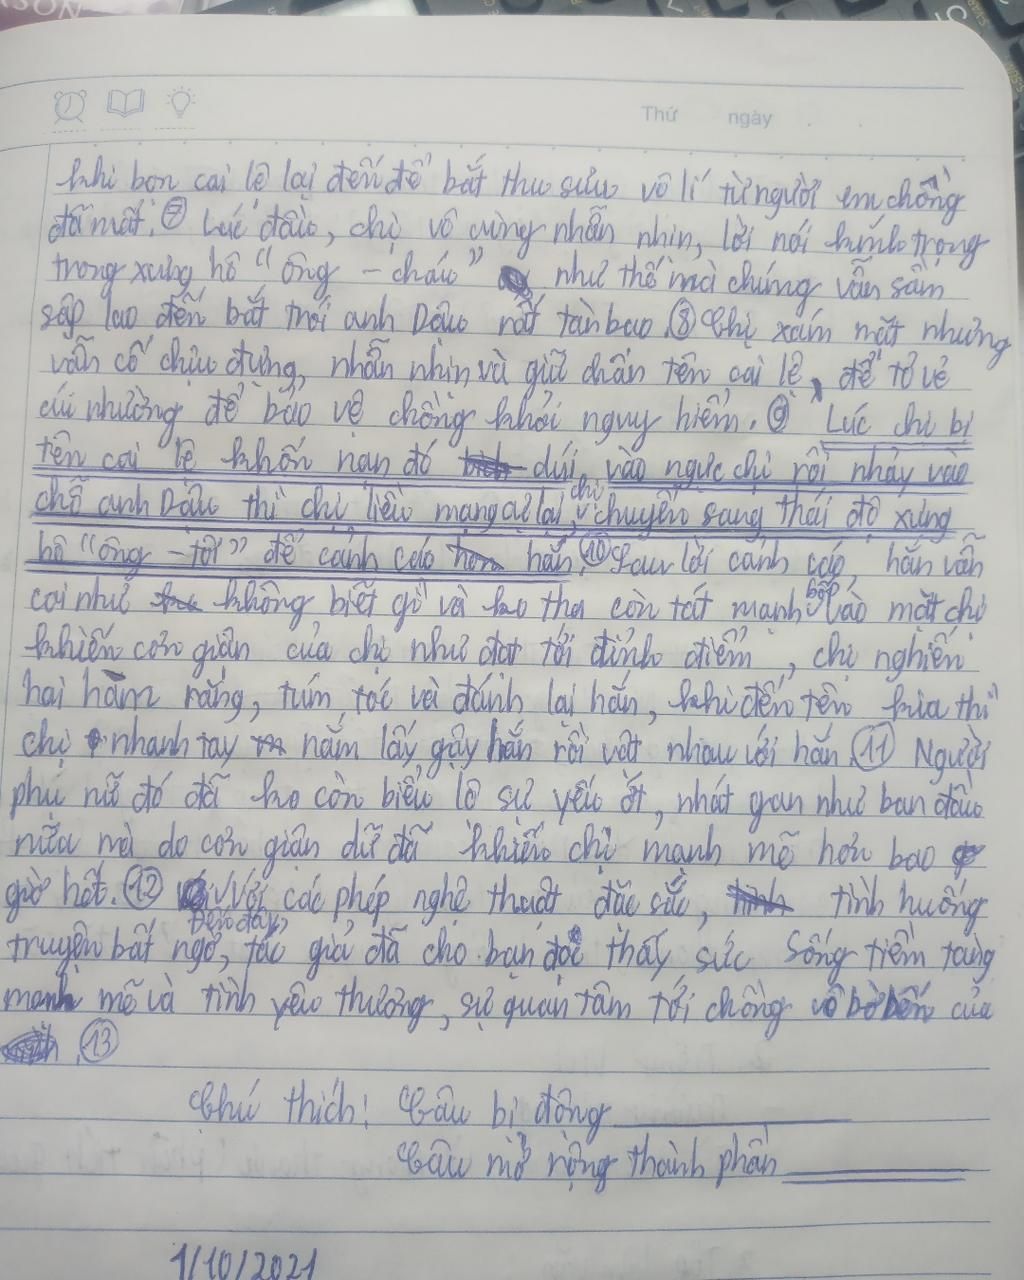 SON
Thứ ngày
khi bọn cai lệ lại đến để bắt thu sưu vô lí từ người em chồng
đã mất. ⑦ Lúc đầu, chị vô cùng nhẫn nhịn, lời nói kính trọng
trong xưng hô "ông - cháu" như thế mà chúng vẫn sầm
sập lao đến bắt trói anh Dậu rất tàn bạo. ⑧ Chị xám mặt nhưng
vẫn cố chịu đựng, nhẫn nhịn và giữ chân tên cai lệ, để tỏ vẻ
cúi nhường để bảo vệ chồng khỏi nguy hiểm. ⑨ Lúc chị bị
tên cai lệ khốn nạn đó dúi vào ngực chị rồi nhảy vào
chỗ anh Dậu thì chị liều mạng cự lại, chị chuyển sang thái độ xưng
hô "ông - tôi" để cảnh cáo hắn. ⑩ Sau lời cảnh cáo, hắn vẫn
coi như không biết gì và ko tha còn tát mạnh bốp vào mặt chị
khiến cơn giận của chị như đạt tới đỉnh điểm, chị nghiến
hai hàm răng, túm tóc và đánh lại hắn, khi đến tên kia thì
chị nhanh tay nắm lấy gậy hắn rồi vật nhau với hắn. ⑪ Người
phụ nữ đó đã ko còn biểu lộ sự yếu ớt, nhát gan như ban đầu
nữa mà do cơn giận dữ đã khiến chị mạnh mẽ hơn bao
giờ hết. ⑫ Với các phép nghệ thuật đặc sắc, tình huống
truyện bất ngờ, Đến đây, tác giả đã cho bạn đọc thấy sức sống tiềm tàng
mạnh mẽ và tình yêu thương, sự quan tâm tới chồng vô bờ bến của
. ⑬
Chú thích: Câu bị động
Câu mở rộng thành phần
1/10/2021